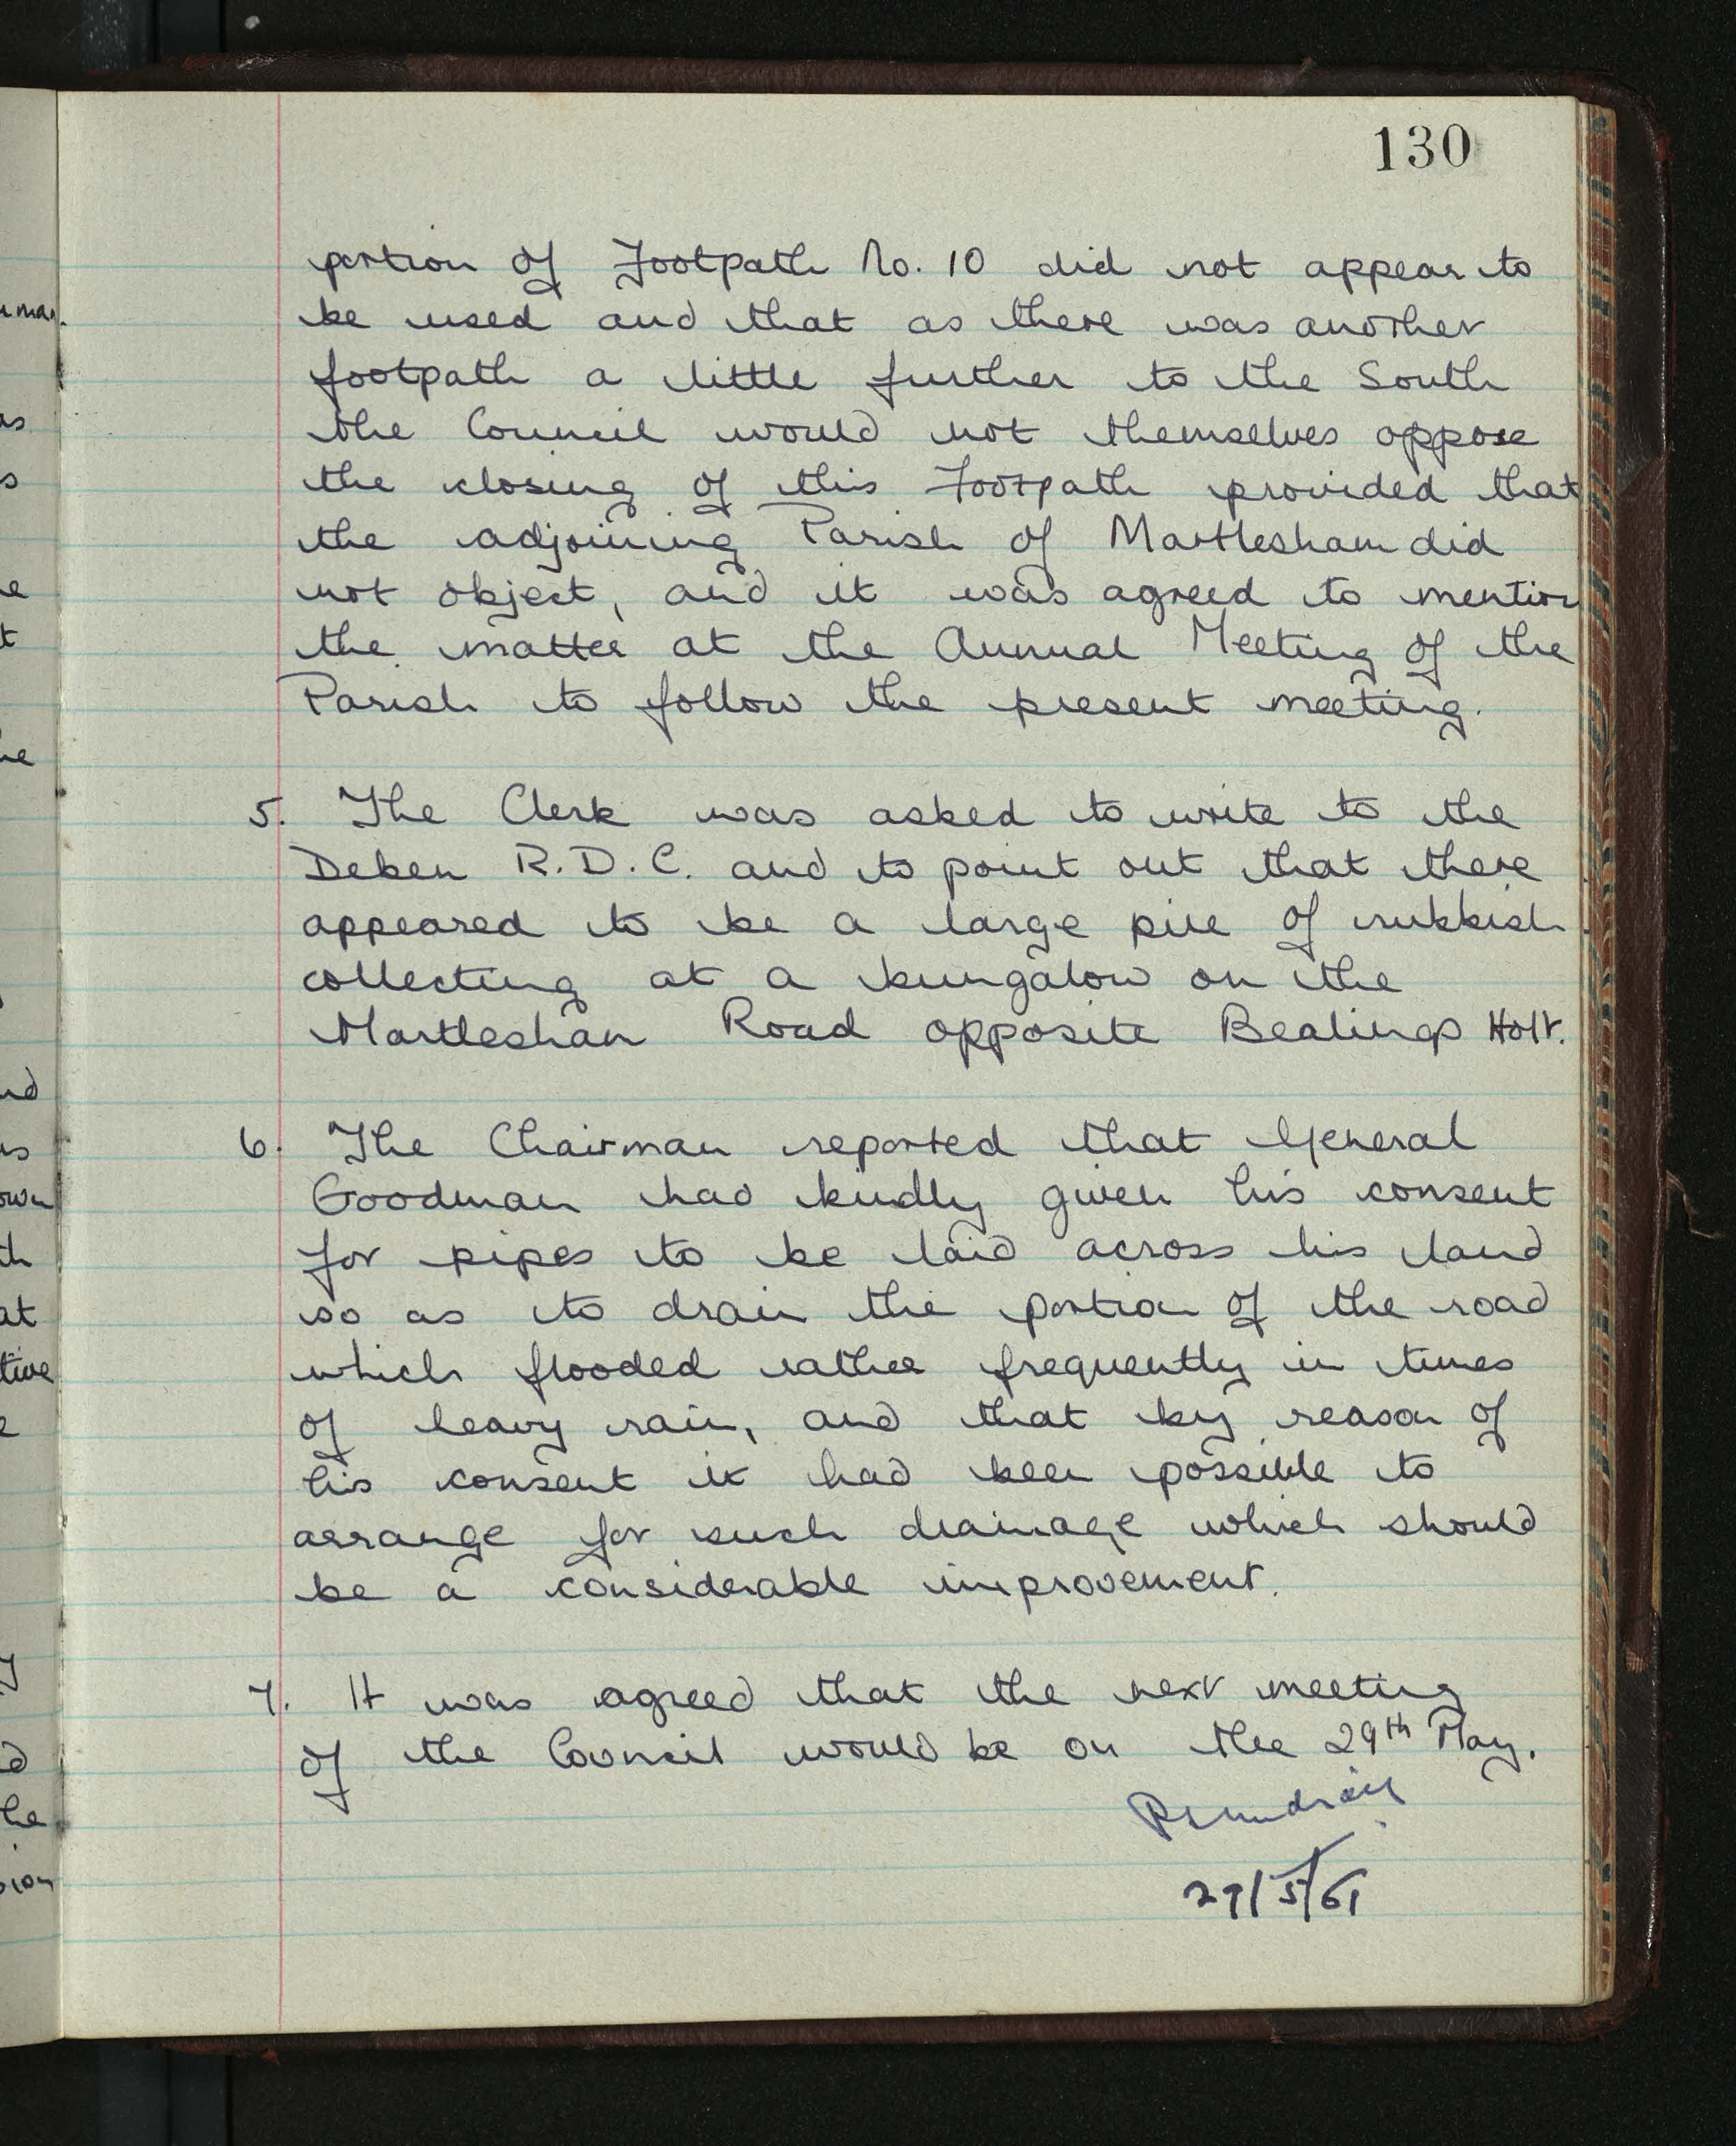 130
portion of Footpath No. 10 did not appear to
be used and that as there was another
footpath a little further to the South
the Council would not themselves oppose
the closing of this Footpath provided that
the adjoining Parish of Martlesham did
not object, and it was agreed to mention
the matter at the Annual Meeting of the
Parish to follow the present meeting.
5. The Clerk was asked to write to the
Deben R.D.C. and to point out that there
appeared to be a large pile of rubbish
collecting at a bungalow on the
Martlesham Road opposite Bealings Holt.
6. The Chairman reported that General
Goodman had kindly given his consent
for pipes to be laid across his land
so as to drain the portion of the road
which flooded rather frequently in times
of heavy rain, and that by reason of
his consent it had been possible to
arrange for such drainage which should
be a considerable improvement.
7. It was agreed that the next meeting
of the Council would be on the 29th May.
29/5/61